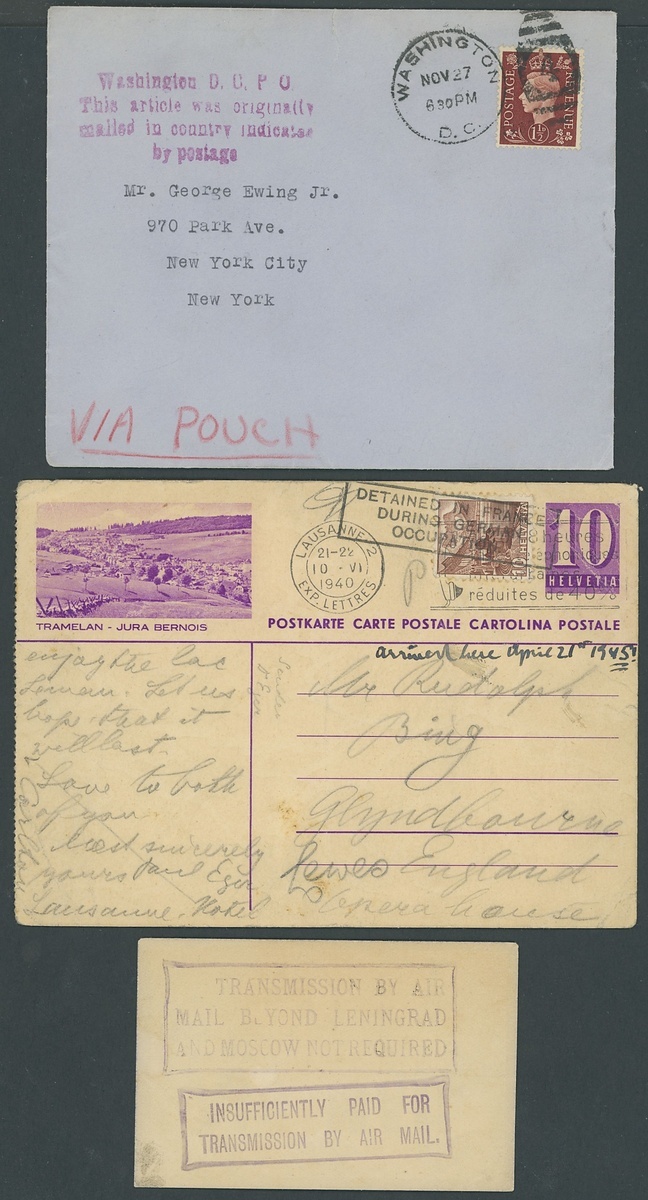 Washington D. C. P O
This article was originally
mailed in country indicated
by postage
WASHINGTON
NOV 27
630 PM
D. C.
POSTAGE
REVENUE
1½
Mr. George Ewing Jr.
970 Park Ave.
New York City
New York
VIA POUCH
DETAINED IN FRANCE
DURING GERMAN
OCCUPATION
LAUSANNE 2
21-22
10 - VI
1940
EXP. LETTRES
8 heures
réduites de 40%
HELVETIA
10
HELVETIA
TRAMELAN - JURA BERNOIS
POSTKARTE CARTE POSTALE CARTOLINA POSTALE
arrived here April 21st 1945!
enjoy the lac
Leman. Let us
hope that it
will last.
Love to both
of you.
Most sincerely
yours Paul Eger
Lausanne. Hotel
Carlton
Sender
P. Eger
Mr Rudolph
Bing
Glyndbourne
Lewes England
Opera house
TRANSMISSION BY AIR
MAIL BEYOND LENINGRAD
AND MOSCOW NOT REQUIRED
INSUFFICIENTLY PAID FOR
TRANSMISSION BY AIR MAIL.